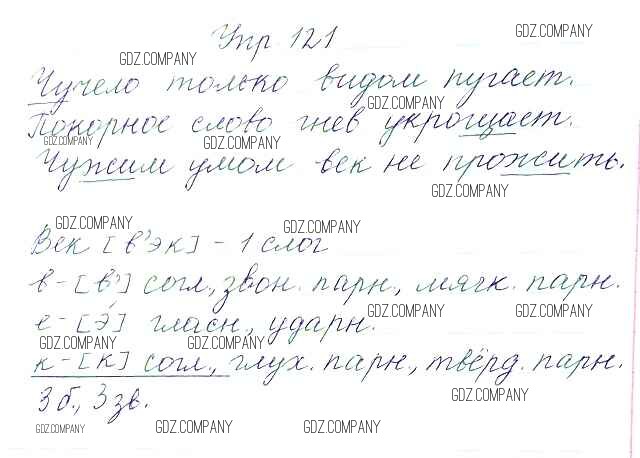 Упр 121
GDZ.COMPANY
GDZ.COMPANY
Чучело только видом пугает.
GDZ.COMPANY
Покорное слово гнев укрощает.
GDZ.COMPANY
GDZ.COMPANY
Чужим умом век не прожить.
GDZ.COMPANY
GDZ.COMPANY
GDZ.COMPANY
Век [в'эк] - 1 слог
в - [в'] согл, звон. парн, мягк. парн.
GDZ.COMPANY
GDZ.COMPANY
е - [э́] гласн, ударн.
GDZ.COMPANY
GDZ.COMPANY
к - [к] согл, глух. парн, твёрд. парн.
GDZ.COMPANY
3 б., 3 зв.
GDZ.COMPANY
GDZ.COMPANY
GDZ.COMPANY